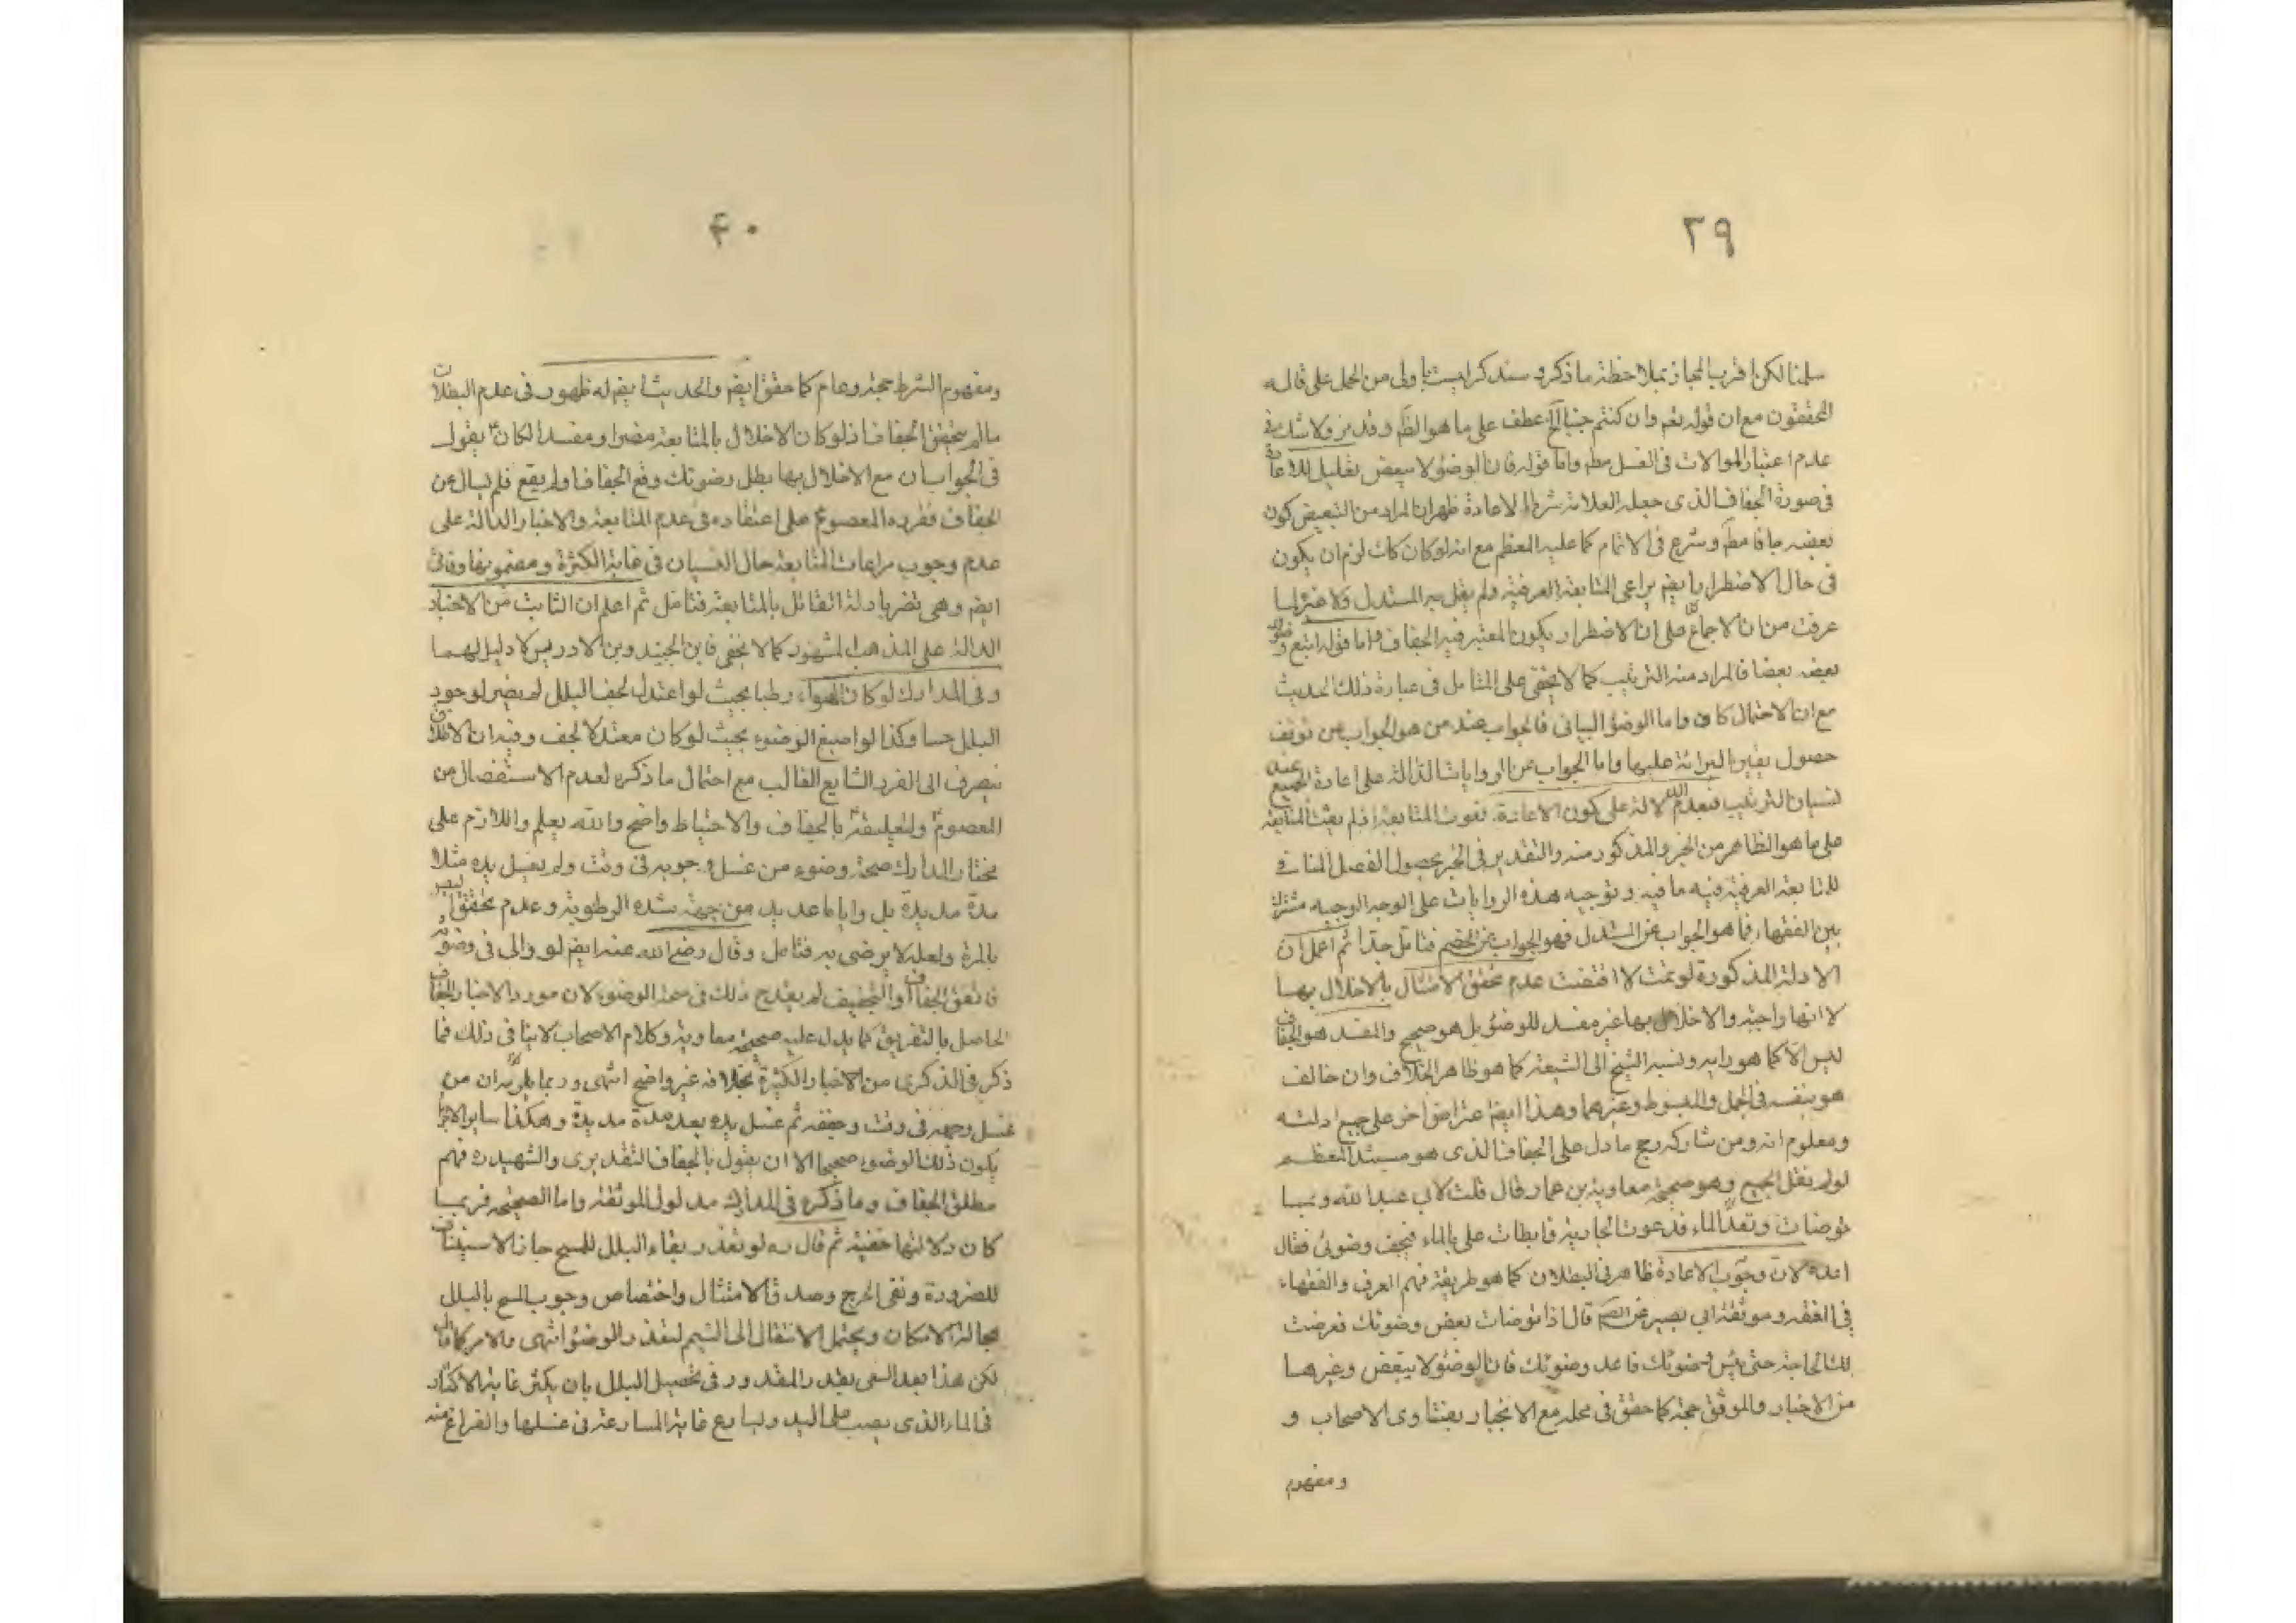 ٣٩
سلمنا لكن اقرب المجاز بملاحظة ما ذكره سنذكر ليست باولى من الحمل على قاله
المحققون مع ان قوله تعم وان كنتم جنبا آلخ عطف على ما هو الظم وقد مر ولا شك في
عدم اعتبار الموالات في الغسل مطم واما قوله فان الوضوء لا يبعض تعليل للاعادة
في صورة الجفاف الذى جعله العلامة شرطا للاعادة ظهر ان المراد من التبعيض كون
بعضه جافا مطم وشرع في الاتمام كما عليه المعظم مع انه لو كان كك لزم ان يكون
في حال الاضطرار يا يضم يراعى المتابعة العرفية ولم يقل به المستدل ولا غيره لما
عرفت من ان الاجماع على ان الاضطرار يكون المعتبر فيه الجفاف واما قوله اتبع وضوئك
بعضه بعضا فالمراد منه الترتيب كما لا يخفى على المتامل في عبارة ذلك الحديث
مع ان الاحتمال كاف واما الوضوء البياني فالجواب عنه من هو الجواب عن توقف
حصول يقين البرائة عليها واما الجواب عن الروايات الدالة على اعادة الجميع عند
لنسيان الترتيب فبعدم الدلالة على كون الاعادة تفوت المتابعة اذ لم يفت المتابعة
على ما هو الظاهر من الخبر والمذكور منه والتقدير في الخبر بحصول الفصل المنافي
للمتابعة العرفية فيه ما فيه وتوجيه هذه الروايات على الوجه الوجيه مشترك
بين الفقهاء فما هو الجواب عن المستدل فهو الجواب عن الخصم فتامل جدا ثم اعلم ان
الادلة المذكورة لو تمت لاقتضت عدم تحقق الامتثال بالاخلال بها
لا انها واجبة والاخلال بها غير مفسد للوضوء بل هو صحيح والمفسد هو الجفاف
ليس الا كما هو رايه ونسبه الشيخ الى الشيعة كما هو ظاهر الخلاف وان خالف
هو بنفسه في الجمل والمبسوط وغيرهما وهذا ايضا اعتراض اخر على جميع ادلته
ومعلوم انه ومن شاركه رجح ما دل على الجفاف الذى هو مستند المعظم
لو لم نقل الجميع وهو صحيحة معاوية بن عمار قال قلت لابي عبد الله ربما
توضات ونفد الماء فدعوت الجارية فابطات على بالماء فيجف وضوئى فقال
اعده لان وجوب الاعادة ظاهر في البطلان كما هو طريقة فهم العرف والفقهاء
في الفقه وموثقة ابي بصير عن الصم قال اذا توضات بعض وضوئك فعرضت
لك الحاجة حتى يبس وضوئك فاعد وضوئك فان الوضوء لا يبعض وغيرهما
من الاخبار والموثق حجة كما حقق في محله مع الانجبار بفتاوى الاصحاب و
ومفهوم
۴٠
ومفهوم الشرط حجة وعام كما حقق ايضم والحديث ايضم له ظهور في عدم البطلان
ما لم يتحقق الجفاف اذ لو كان الاخلال بالمتابعة مضرا ومفسدا لكان يقول
في الجواب ان مع الاخلال بها بطل وضوئك وقع الجفاف او لم يقع فلم تسال عن
الجفاف فقرره المعصوم على اعتقاده في عدم المتابعة والاخبار الدالة على
عدم وجوب مراعات المتابعة حال النسيان في غاية الكثرة ومضمونها وفاقى
ايضم وهى تضر بادلة القائل بالمتابعة فتامل ثم اعلم ان الثابت من الاخبار
الدالة على المذهب المشهور كما لا يخفى فابن الجنيد وبن الادريس لا دليل لهما
وفي المدارك لو كان الهواء رطبا بحيث لو اعتدل لجف البلل لم يضر لوجود
البلل حسا وكذا لو اسبغ الوضوء بحيث لو كان معتدلا لجف وفيه ان الاطلاق
ينصرف الى الفرد الشايع الغالب مع احتمال ما ذكره لعدم الاستفصال من
المعصوم ولتعليقه بالجفاف والاحتياط واضح والله يعلم واللازم على
مختار المدارك صحة وضوء من غسل وجهه في وقت ولم يغسل يده مثلا
مدة مديدة بل واياما عديدة من جهة شدة الرطوبة وعدم تحقق اليبس
بالمرة ولعله لا يرضى به فتامل وقال رضي الله عنه ايضم لو والى في وضوئه
فاتفق الجفاف او التجفيف لم يقدح ذلك في صحة الوضوء لان مورد الاخبار الجفاف
الحاصل بالتفريق كما يدل عليه صحيحة معاوية وكلام الاصحاب لا ينافي ذلك فما
ذكر في الذكرى من الاخبار الكثيرة بخلافه غير واضح انتهى وربما يلزم ان من
غسل وجهه في وقت وجففه ثم غسل يده بعد مدة مديدة وهكذا ساير الاجزاء
يكون ذلك الوضوء صحيحا الا ان يقول بالجفاف التقديرى والشهيد ره فهم
مطلق الجفاف وما ذكره في المدارك مدلول الموثقة واما الصحيحة فربما
كان دلالتها خفية ثم قال ره لو تعذر بقاء البلل للمسح جاز الاستيناف
للضرورة ونفى الحرج وصدق الامتثال واختصاص وجوب المسح بالبلل
بحالة الامكان ويحتمل الانتقال الى التيمم لتعذر الوضوء انتهى والامر كما قال
لكن هذا بعد السعى بقدر المقدور في تحصيل البلل بان يكثر غاية الاكثار
في الماء الذى يصب على اليد ويسارع غاية المسارعة في غسلها والفراغ منه